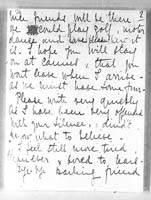 nice friends will be there
we could play golf, motor
dance and have
it. I hope you will stay
on at Cannes, & that you
wont leave when I arrive -
as we must have some fun -
Please write very quickly
as I have been very offended
with your silence, & didn't
know what to believe.
I feel still more tired
than ever & bored to tears -
Yr
friend